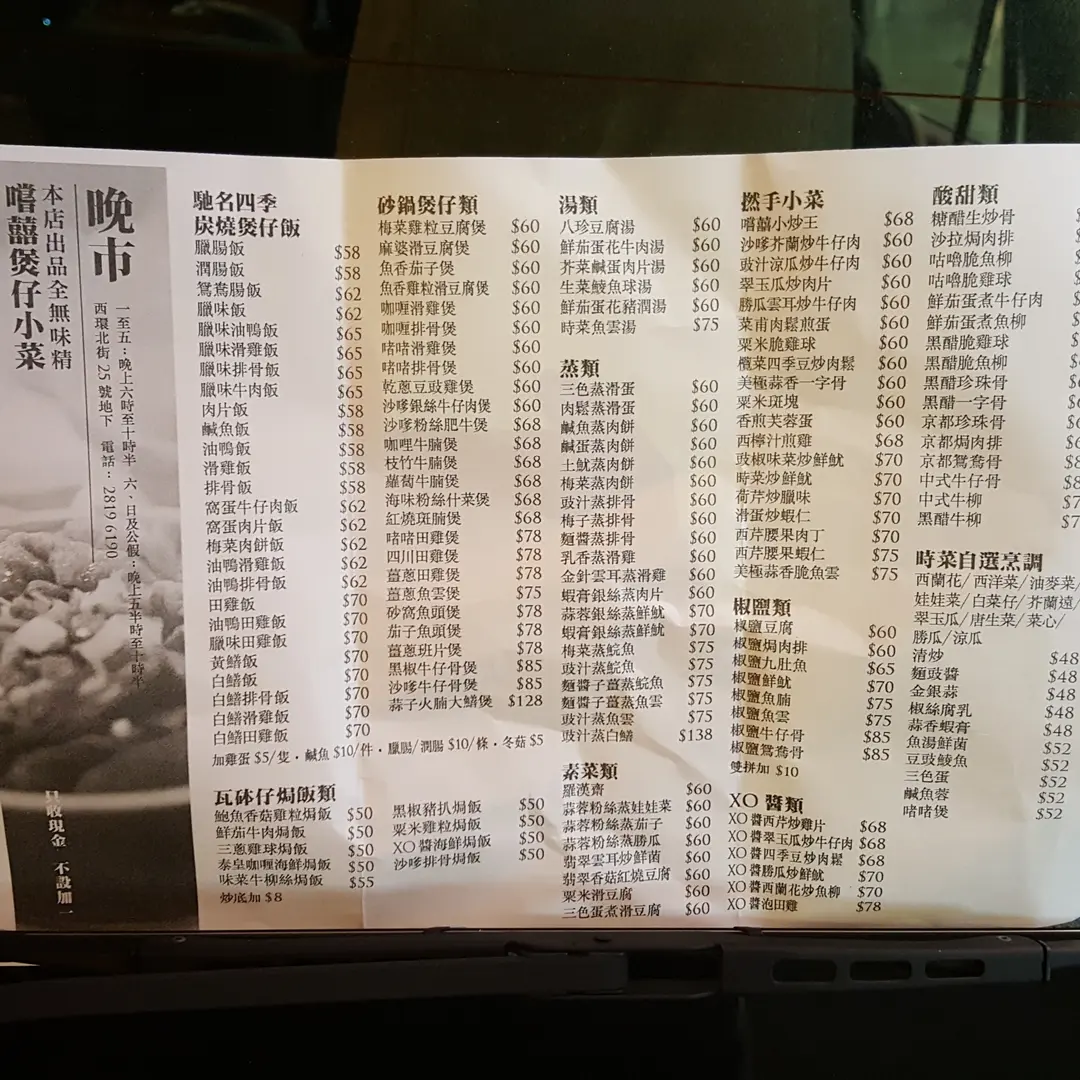 晚市
本店出品全無味精
嚐囍煲仔小菜
一至五：晚上六時至十時半 六、日及公假：晚上五半時至十時半
西環北街25號地下 電話：2819 6190
只收現金 不設加一
馳名四季
炭燒煲仔飯
臘腸飯 $58
潤腸飯 $58
鴛鴦腸飯 $62
臘味飯 $62
臘味油鴨飯 $65
臘味滑雞飯 $65
臘味排骨飯 $65
臘味牛肉飯 $65
肉片飯 $58
鹹魚飯 $58
油鴨飯 $58
滑雞飯 $58
排骨飯 $58
窩蛋牛仔肉飯 $62
窩蛋肉片飯 $62
梅菜肉餅飯 $62
油鴨滑雞飯 $62
油鴨排骨飯 $62
田雞飯 $70
油鴨田雞飯 $70
臘味田雞飯 $70
黃鱔飯 $70
白鱔飯 $70
白鱔排骨飯 $70
白鱔滑雞飯 $70
白鱔田雞飯 $70
加雞蛋 $5/隻・鹹魚 $10/件・臘腸/潤腸 $10/條・冬菇 $5
瓦砵仔焗飯類
鮑魚香菇雞粒焗飯 $50
鮮茄牛肉焗飯 $50
三蔥雞球焗飯 $50
泰皇咖喱海鮮焗飯 $50
味菜牛柳絲焗飯 $55
炒底加 $8
黑椒豬扒焗飯 $50
粟米雞粒焗飯 $50
XO醬海鮮焗飯 $50
沙嗲排骨焗飯 $50
砂鍋煲仔類
梅菜雞粒豆腐煲 $60
麻婆滑豆腐煲 $60
魚香茄子煲 $60
魚香雞粒滑豆腐煲 $60
咖喱滑雞煲 $60
咖喱排骨煲 $60
啫啫滑雞煲 $60
啫啫排骨煲 $60
乾蔥豆豉雞煲 $60
沙嗲銀絲牛仔肉煲 $60
沙嗲粉絲肥牛煲 $68
咖哩牛腩煲 $68
枝竹牛腩煲 $68
蘿蔔牛腩煲 $68
海味粉絲什菜煲 $68
紅燒斑腩煲 $68
啫啫田雞煲 $78
四川田雞煲 $78
薑蔥田雞煲 $78
薑蔥魚雲煲 $75
砂窩魚頭煲 $78
茄子魚頭煲 $78
薑蔥班片煲 $78
黑椒牛仔骨煲 $85
沙嗲牛仔骨煲 $85
蒜子火腩大鱔煲 $128
湯類
八珍豆腐湯 $60
鮮茄蛋花牛肉湯 $60
芥菜鹹蛋肉片湯 $60
生菜鯪魚球湯 $60
鮮茄蛋花豬潤湯 $60
時菜魚雲湯 $75
蒸類
三色蒸滑蛋 $60
肉鬆蒸滑蛋 $60
鹹魚蒸肉餅 $60
鹹蛋蒸肉餅 $60
土魷蒸肉餅 $60
梅菜蒸肉餅 $60
豉汁蒸排骨 $60
梅子蒸排骨 $60
麵醬蒸排骨 $60
乳香蒸滑雞 $60
金針雲耳蒸滑雞 $60
蝦膏銀絲蒸肉片 $60
蒜蓉銀絲蒸鮮魷 $70
蝦膏銀絲蒸鮮魷 $70
梅菜蒸鯇魚 $75
豉汁蒸鯇魚 $75
麵醬子薑蒸鯇魚 $75
麵醬子薑蒸魚雲 $75
豉汁蒸魚雲 $75
豉汁蒸白鱔 $138
素菜類
羅漢齋 $60
蒜蓉粉絲蒸娃娃菜 $60
蒜蓉粉絲蒸茄子 $60
蒜蓉粉絲蒸勝瓜 $60
翡翠雲耳炒鮮菌 $60
翡翠香菇紅燒豆腐 $60
粟米滑豆腐 $60
三色蛋煮滑豆腐 $60
撚手小菜
嚐囍小炒王 $68
沙嗲芥蘭炒牛仔肉 $60
豉汁涼瓜炒牛仔肉 $60
翠玉瓜炒肉片 $60
勝瓜雲耳炒牛仔肉 $60
菜甫肉鬆煎蛋 $60
粟米脆雞球 $60
欖菜四季豆炒肉鬆 $60
美極蒜香一字骨 $60
粟米斑塊 $60
香煎芙蓉蛋 $60
西檸汁煎雞 $68
豉椒味菜炒鮮魷 $70
時菜炒鮮魷 $70
荷芹炒臘味 $70
滑蛋炒蝦仁 $70
西芹腰果肉丁 $70
西芹腰果蝦仁 $75
美極蒜香脆魚雲 $75
椒鹽類
椒鹽豆腐 $60
椒鹽焗肉排 $60
椒鹽九肚魚 $65
椒鹽鮮魷 $70
椒鹽魚腩 $70
椒鹽魚雲 $75
椒鹽牛仔骨 $85
椒鹽鴛鴦骨 $85
雙拼加 $10
XO醬類
XO醬西芹炒雞片 $68
XO醬翠玉瓜炒牛仔肉 $68
XO醬四季豆炒肉鬆 $68
XO醬勝瓜炒鮮魷 $70
XO醬西蘭花炒魚柳 $70
XO醬泡田雞 $78
酸甜類
糖醋生炒骨
沙拉焗肉排
咕嚕脆魚柳
咕嚕脆雞球
鮮茄蛋煮牛仔肉
鮮茄蛋煮魚柳
黑醋脆雞球
黑醋脆魚柳
黑醋珍珠骨
黑醋一字骨
京都珍珠骨
京都焗肉排
京都鴛鴦骨
中式牛仔骨
中式牛柳
黑醋牛柳
時菜自選烹調
西蘭花/西洋菜/油麥菜/
娃娃菜/白菜仔/芥蘭遠/
翠玉瓜/唐生菜/菜心/
勝瓜/涼瓜
清炒 $48
麵豉醬 $48
金銀蒜 $48
椒絲腐乳 $48
蒜香蝦膏 $48
魚湯鮮菌 $52
豆豉鯪魚 $52
三色蛋 $52
鹹魚蓉 $52
啫啫煲 $52